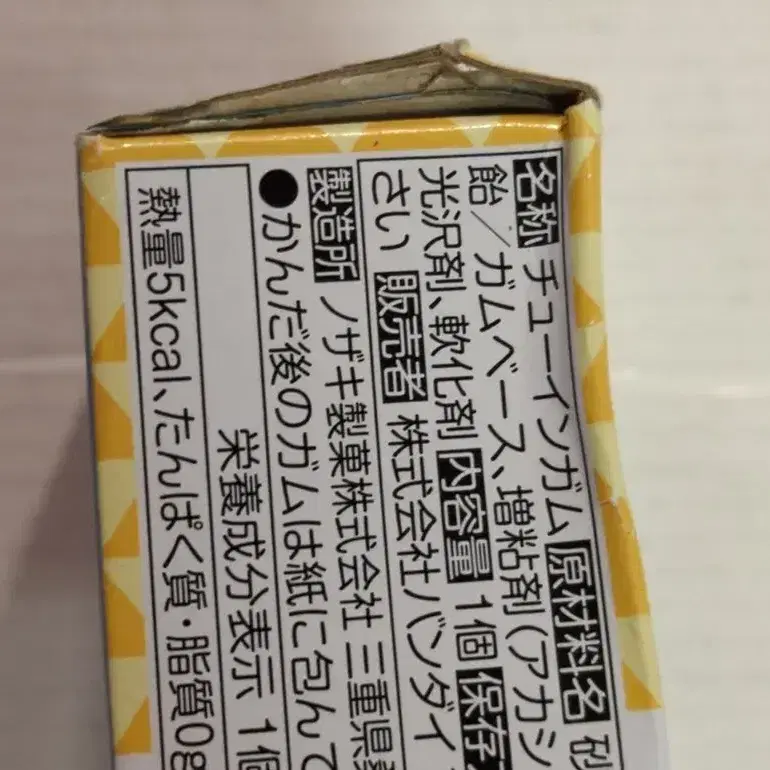 名称 チューインガム 原材料名 砂
飴／ガムベース、増粘剤(アカシ
光沢剤、軟化剤 内容量 1個 保存
さい 販売者 株式会社バンダイ
製造所 ノザキ製菓株式会社 三重県
●かんだ後のガムは紙に包んで
栄養成分表示 1個
熱量5kcal、たんぱく質・脂質0g